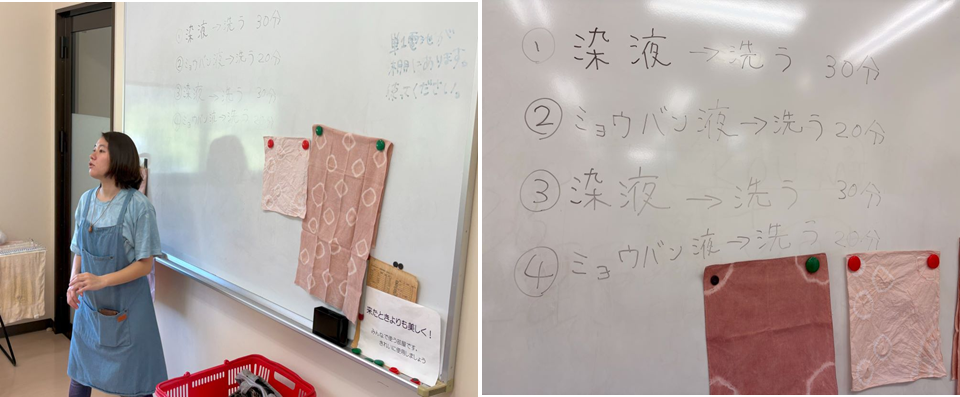 ①染液→洗う 30分
②ミョウバン液→洗う20分
③染液→洗う 30分
使ってください。
来たときよりも美しく!
みんなで使う部屋です。
きれいに使用しましょう
① 染液→洗う 30分
② ミョウバン液→洗う20分
③ 染液→洗う 30分
④ ミョウバン液→洗う 20分